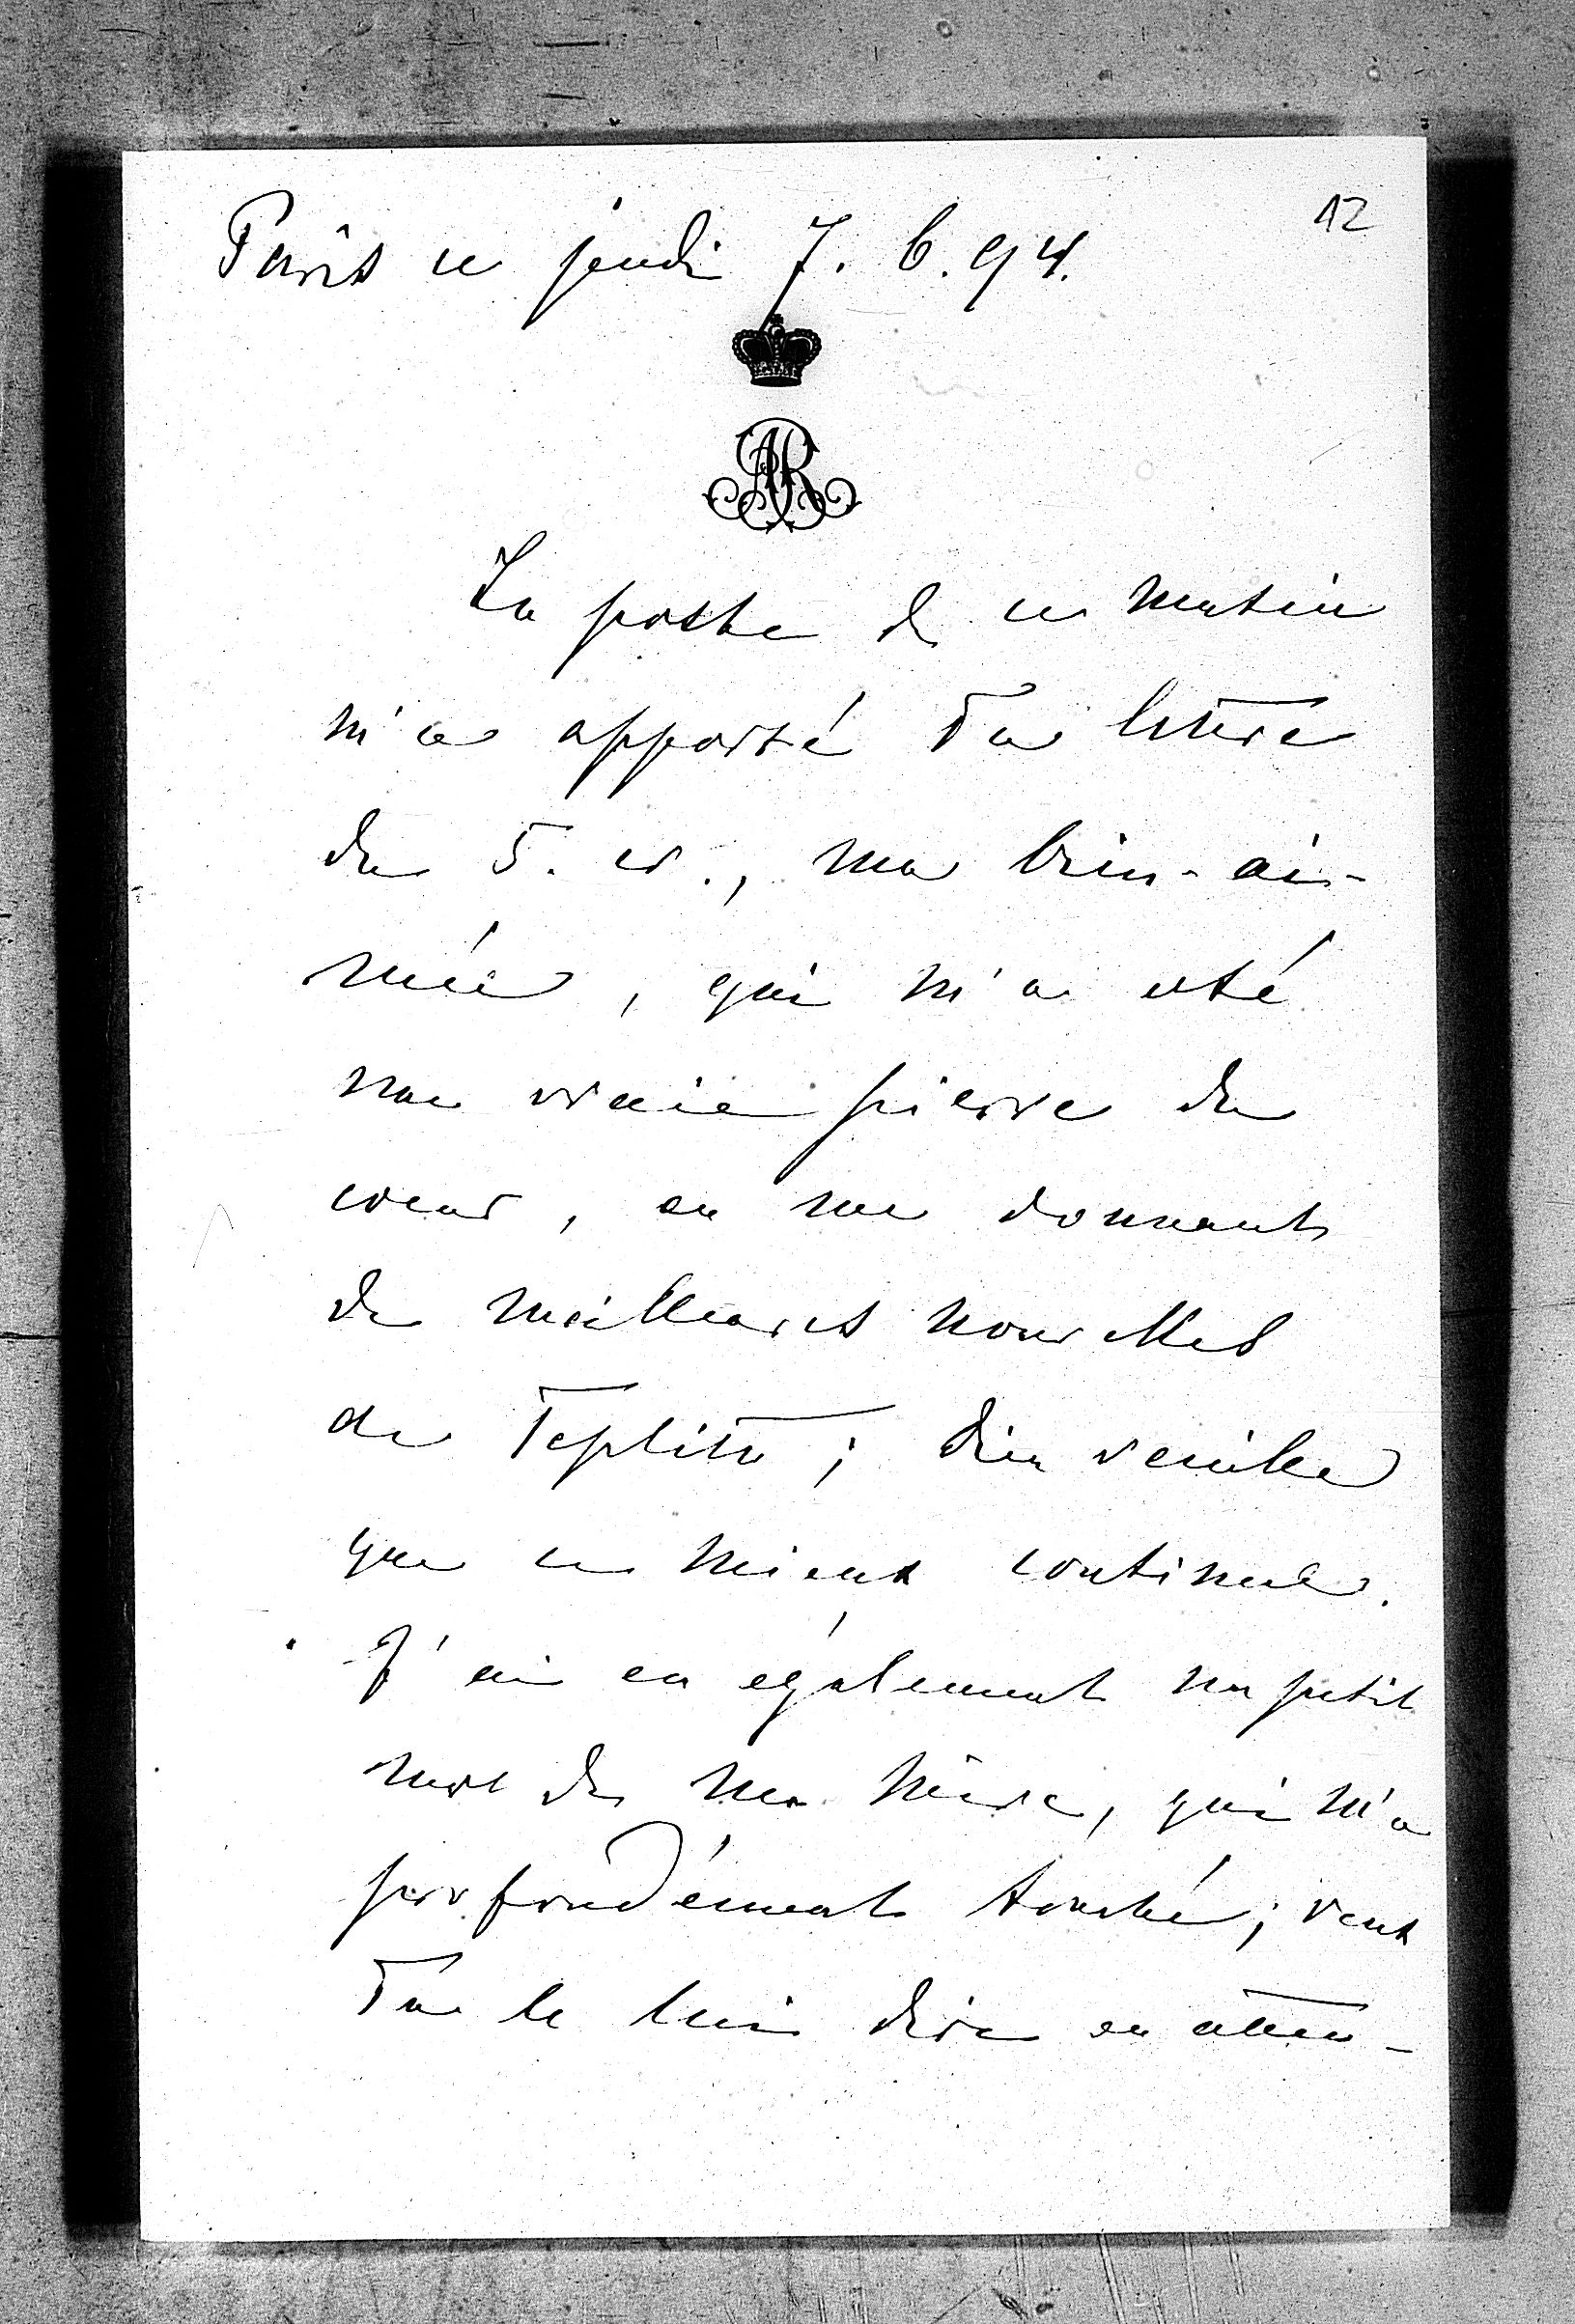 12
Paris ce jeudi 7. 6. 94.
AR
La poste de ce matin
m'a apporté Ta lettre
du 5. cr., ma bien-ai-
mée, qui m'a oté
une vraie pierre du
coeur, en me donnant
de meilleures nouvelles
de Teplitz; Dieu veuille
que ce mieux continue.
J'ai eu également un petit
mot de ma mère, qui m'a
profondément touché; veux
Tu le lui dire en atten-